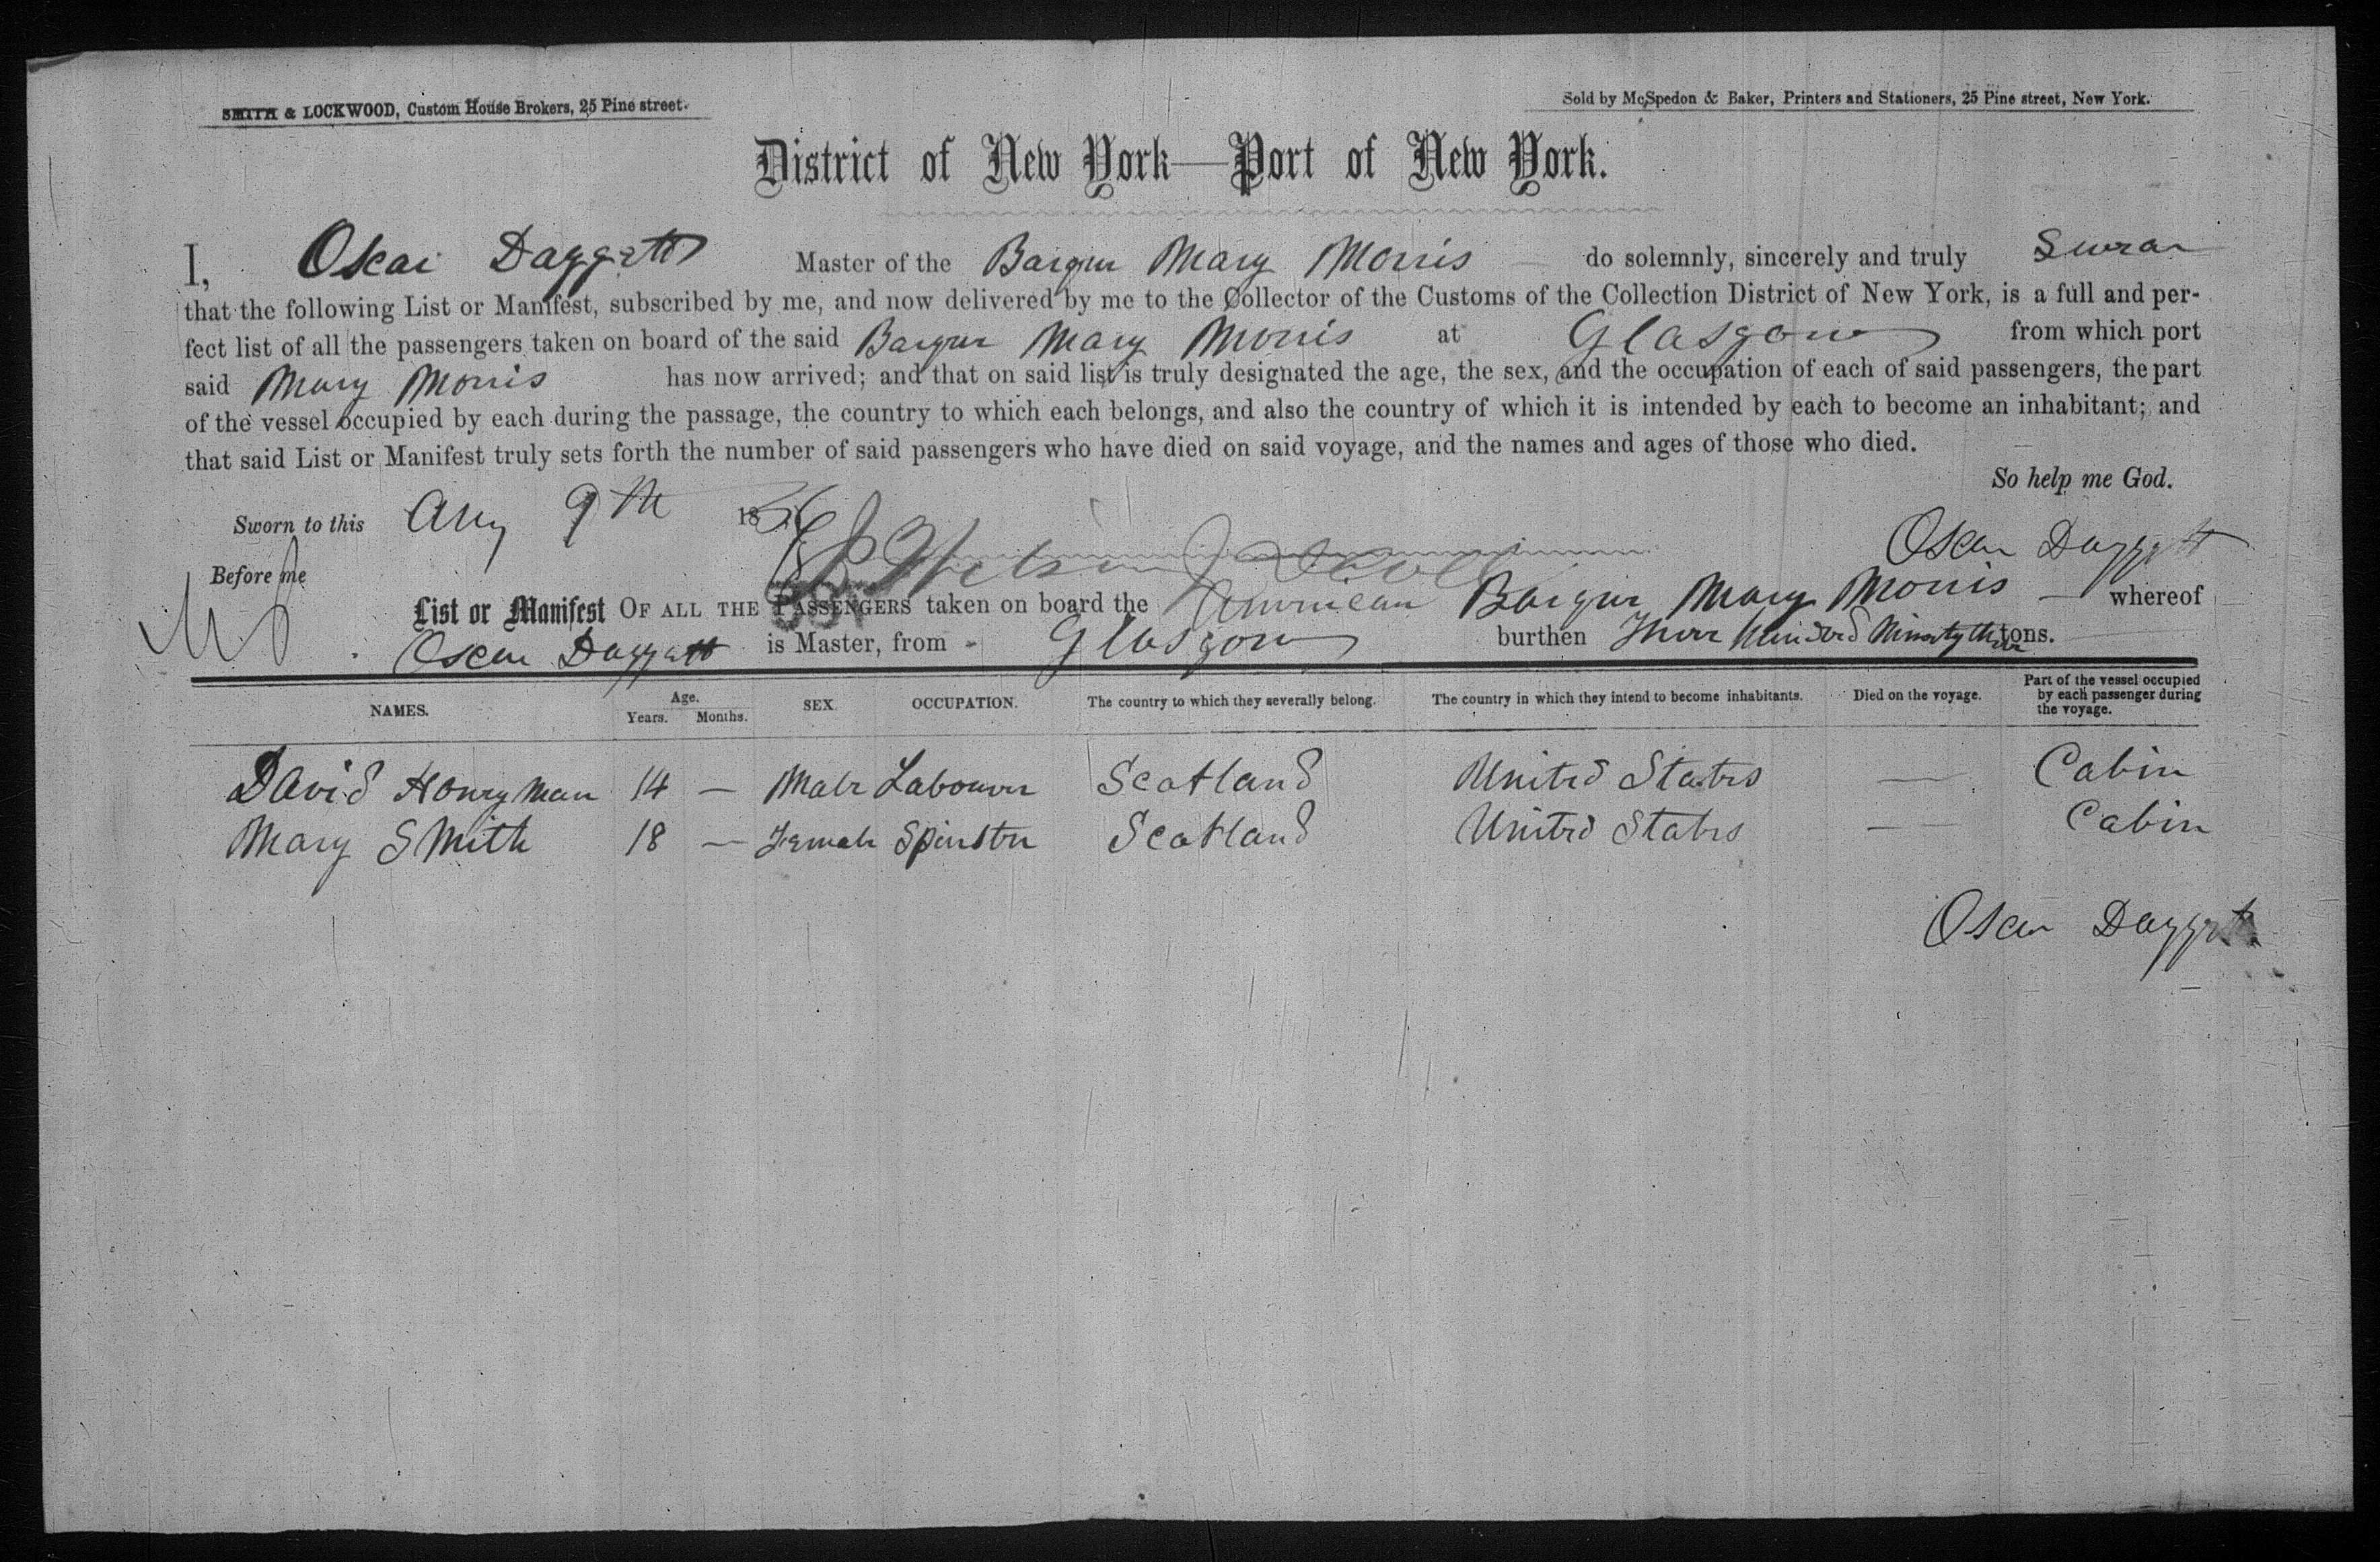 SMITH & LOCKWOOD, Custom House Brokers, 25 Pine street.
Sold by McSpedon & Baker, Printers and Stationers, 25 Pine street, New York.
District of New York—Port of New York.
I, Oscar Daggett Master of the Barque Mary Morris do solemnly, sincerely and truly Swear
that the following List or Manifest, subscribed by me, and now delivered by me to the Collector of the Customs of the Collection District of New York, is a full and per-
fect list of all the passengers taken on board of the said Barque Mary Morris at Glasgow from which port
said Mary Morris has now arrived; and that on said list is truly designated the age, the sex, and the occupation of each of said passengers, the part
of the vessel occupied by each during the passage, the country to which each belongs, and also the country of which it is intended by each to become an inhabitant; and
that said List or Manifest truly sets forth the number of said passengers who have died on said voyage, and the names and ages of those who died.
So help me God.
Sworn to this Aug 9th 1856
Oscar Daggett
Before me
List or Manifest OF ALL THE PASSENGERS taken on board the American Barque Mary Morris whereof
Oscar Daggett is Master, from Glasgow burthen Three Hundred Ninety three tons.
NAMES. Age. Years. Months. SEX. OCCUPATION. The country to which they severally belong. The country in which they intend to become inhabitants. Died on the voyage. Part of the vessel occupied by each passenger during the voyage.
David Honeyman 14 — Male Labourer Scotland United States — Cabin
Mary Smith 18 — Female Spinster Scotland United States — Cabin
Oscar Daggett